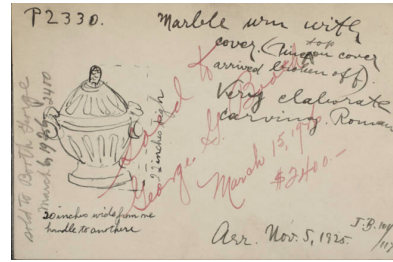 P2330.
Marble urn with
cover. ( top on cover
arrived broken off).
Very elaborate
carving. Roman
Sold to
George G. Booth
March 15, 19
$2400.-
sold to Booth George
March 15, 1926 $2400
22 inches high
20 inches wide from one
handle to another
Arr. Nov. 5, 1925.
J.B. 104
117